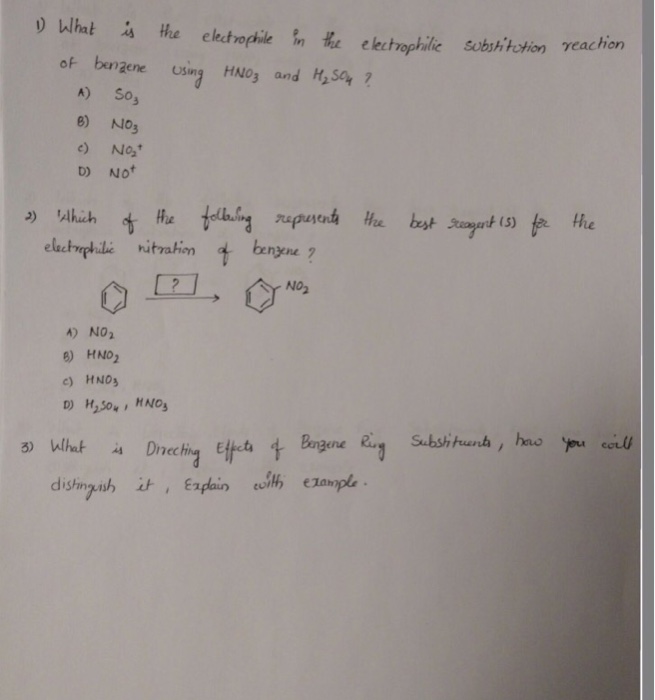 1) What is the electrophile in the electrophilic substitution reaction
of benzene using HNO₃ and H₂SO₄ ?
A) SO₃
B) NO₃
C) NO₂⁺
D) NO⁺
2) Which of the following represents the best reagent(s) for the
electrophilic nitration of benzene ?
? NO₂
A) NO₂
B) HNO₂
C) HNO₃
D) H₂SO₄, HNO₃
3) What is Directing Effects of Benzene Ring Substituents, how you will
distinguish it, Explain with example.